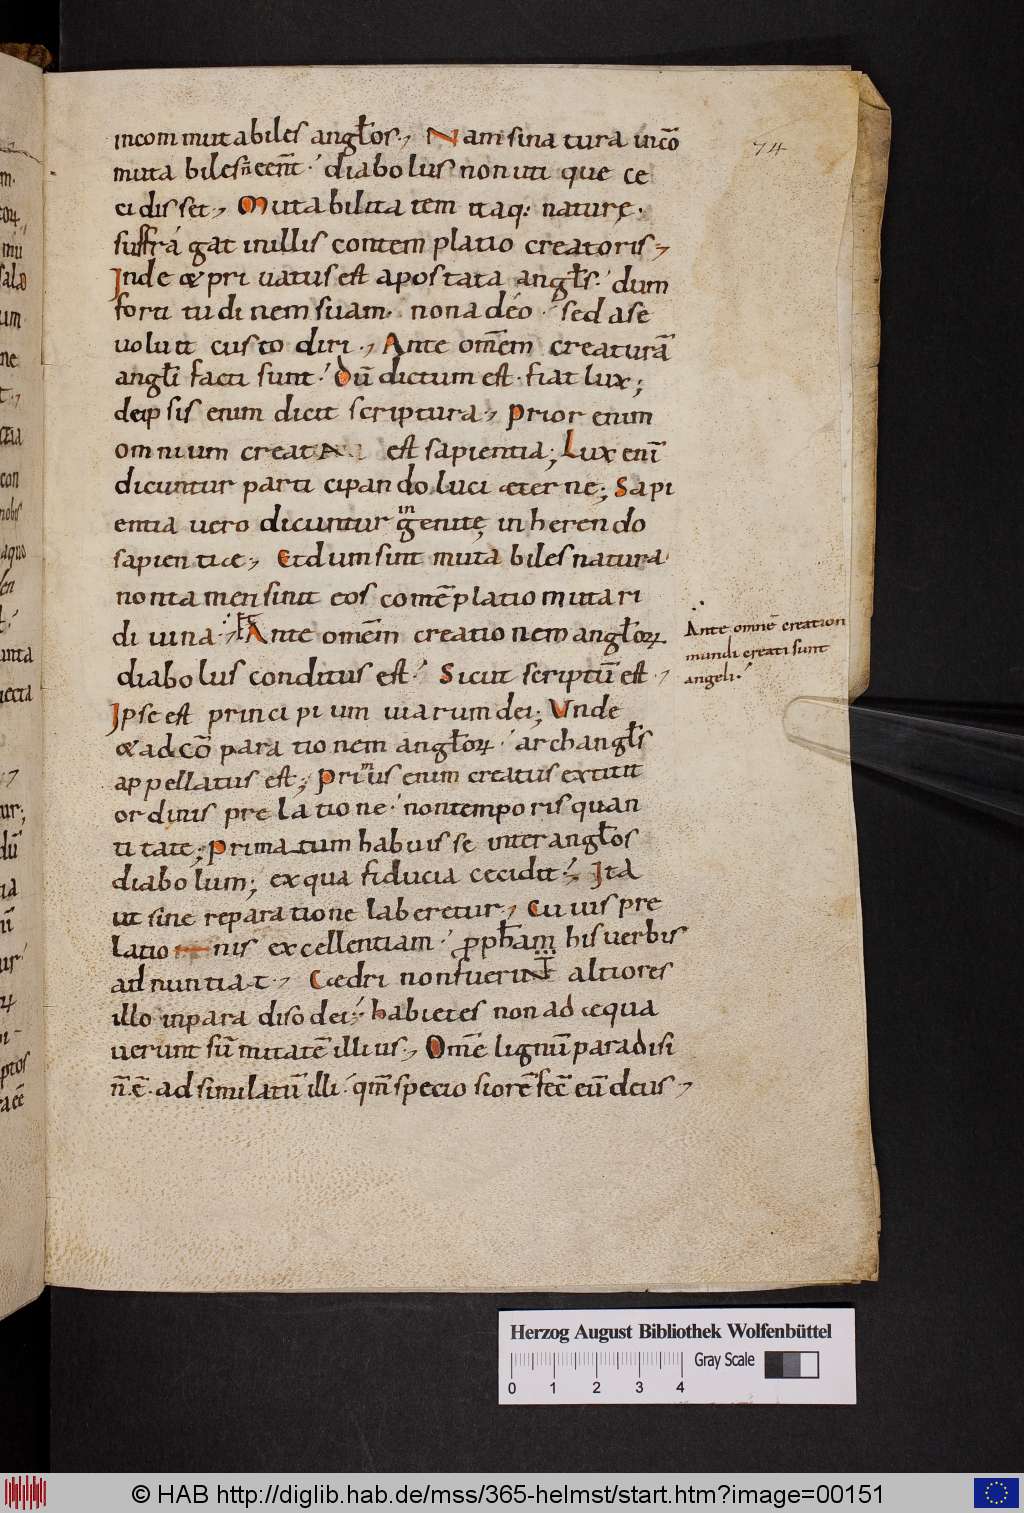 incommutabiles angłos·, Nam si natura incō
mutabiles n̄ eēnt · diabolus non utique ce
cidisset·, Mutabilitatem itaq: naturę ·
suffrágat in illis contemplatio creatoris·,
Inde & privatus est apostata angłs · dum
fortitudinem suam · non a déo · sed a se
voluit custodiri ·, Ante om̄em creaturā
angłi facti sunt · Dū dictum est · fiat lux;
de ipsis enim dicit scriptura·, Prior enim
omnium creata est sapientia; Lux enī
dicuntur participando luci æterne; Sapi
entia vero dicuntur ingenitę inherendo
sapientiæ·, Et dum sint mutabiles natura
non tamen sinit eos contēplatio mutari
divina·, Ante om̄em creationem angłoꝝ
diabolus conditus est · Sicut scriptū est ·,
Ipse est principium viarum dei; Unde
& ad cōparationem angłoꝝ · archangłs
appellatus est; Primus enim creatus extitit
ordinis prelatione · non temporis quan
titate; Primatum habuisse inter angłos
diabolum; ex qua fiducia cecidit · Ita
ut sine reparatione laberetur·, Cuius pre
lationis excellentiam · ꝓpħam his verbis
adnuntiat·, Cædri non fuerunt altiores
illo in paradiso dei · habietes non adæqua
verunt sūmitatē illius·, Om̄e lignū paradisi
n̄ ē · adsimulatū illi · qm̄ speciosiorē fec̄ eū deus·,
74
Ante omnē creation
mundi creati sunt
angeli ·
Herzog August Bibliothek Wolfenbüttel
Gray Scale
0 1 2 3 4
© HAB http://diglib.hab.de/mss/365-helmst/start.htm?image=00151